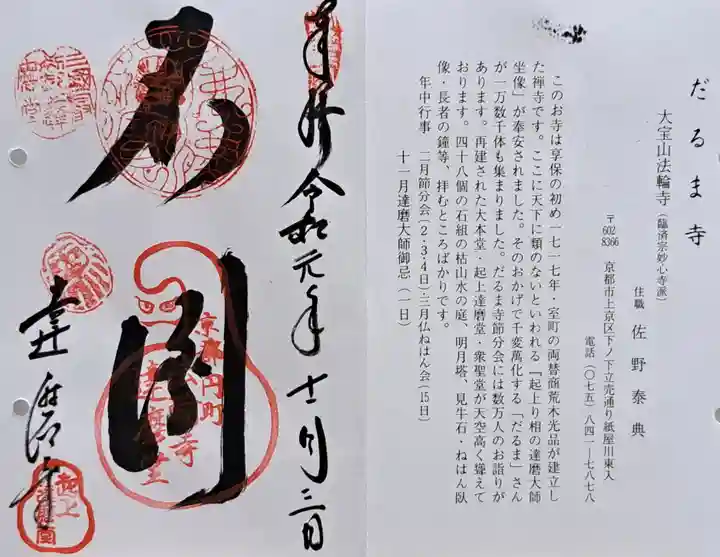 だるま寺
大宝山法輪寺（臨済宗妙心寺派）
住職 佐野泰典
〒602 8366 京都市上京区下ノ下立売通り紙屋川東入
電話（〇七五）八四一ー七八七八
このお寺は享保の初め一七一七年・室町の両替商荒木光品が建立し
た禅寺です。ここに天下に類のないといわれる『起上り相の達磨大師
坐像」が奉安されました。そのおかげで千変萬化する「だるま」さん
が一万数千体も集まりました。だるま寺節分会には数万人のお詣りが
あります。再建された大本堂・起上達磨堂・衆聖堂が天空高く聳えて
おります。四十八個の石組の枯山水の庭、明月塔、見牛石・ねはん臥
像・長者の鐘等、拝むところばかりです。
年中行事 二月節分会（2・3・4日）・三月仏ねはん会（15日）
十一月達磨大師御忌（一日）
奉拝 令和元年十二月三日
京都円町
達磨寺
起上